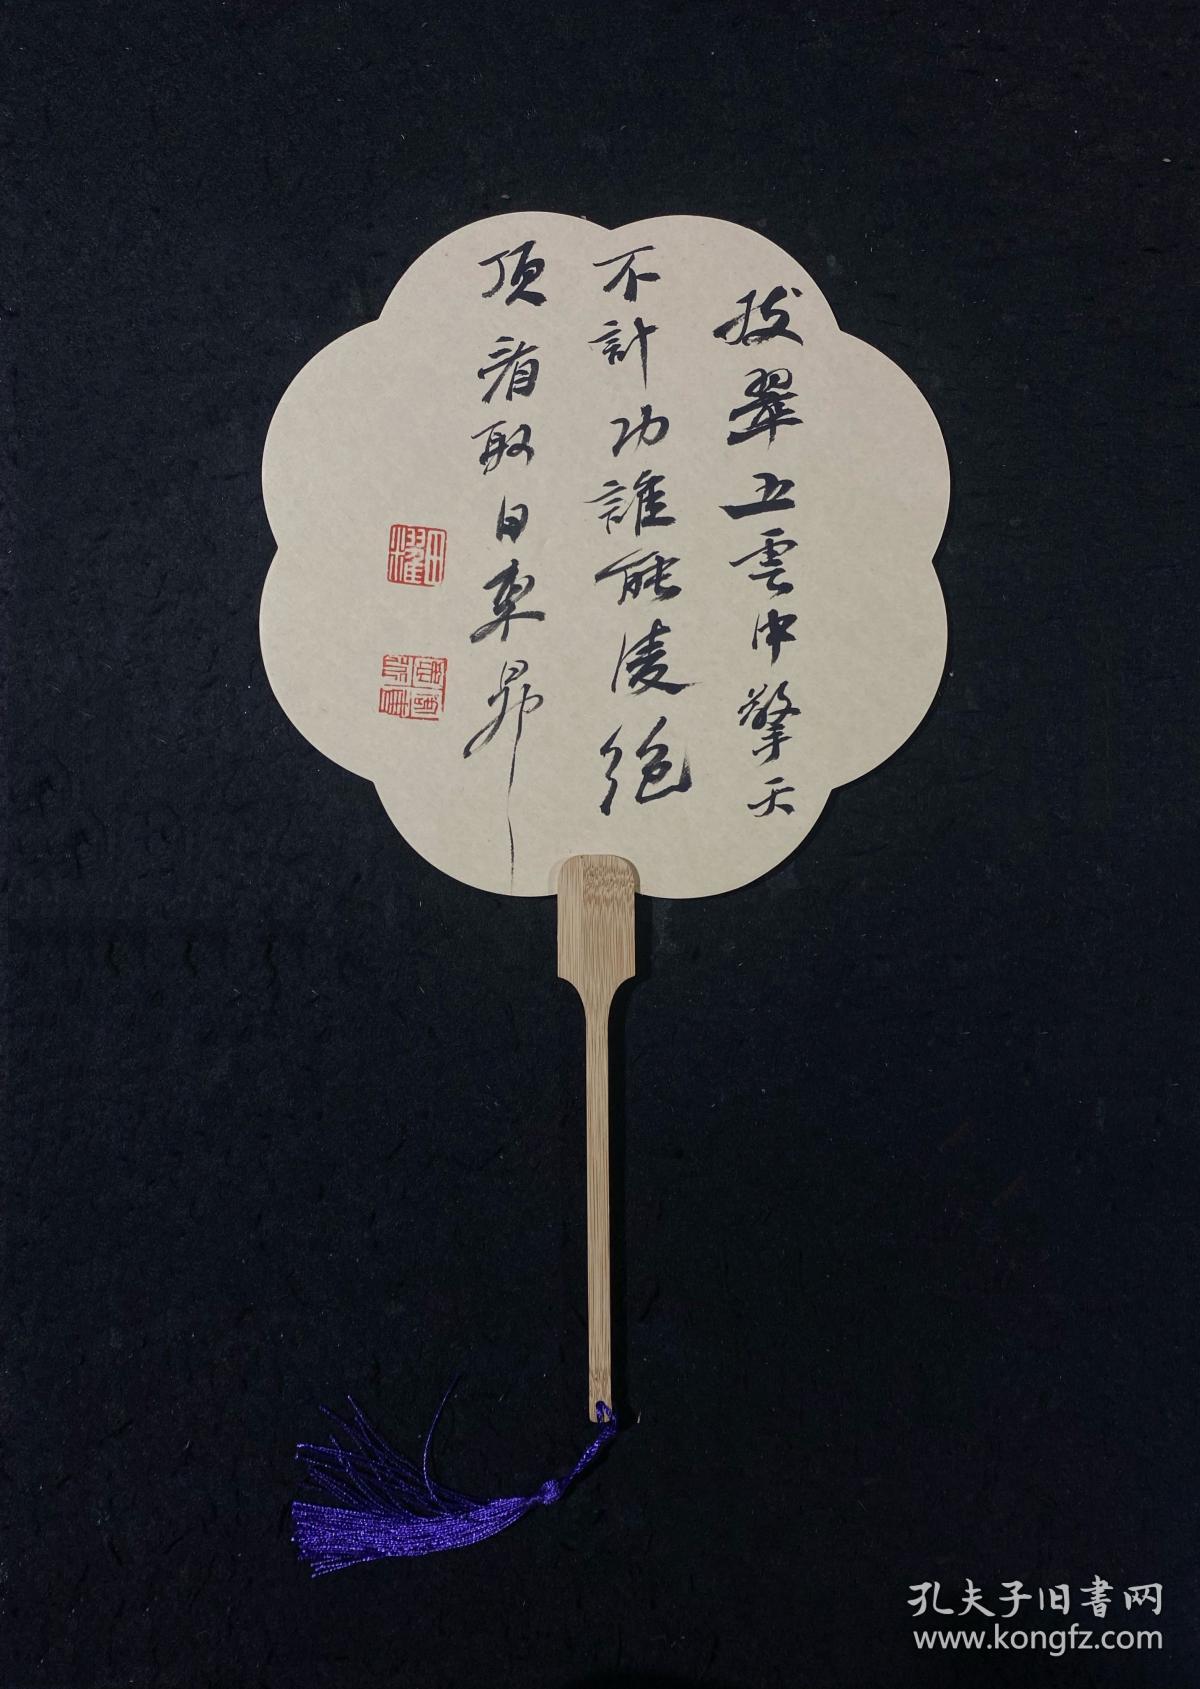 拔翠五雲中擎天
不計功誰能淩絕
頂看取日車昇
孔夫子旧书网
www.kongfz.com